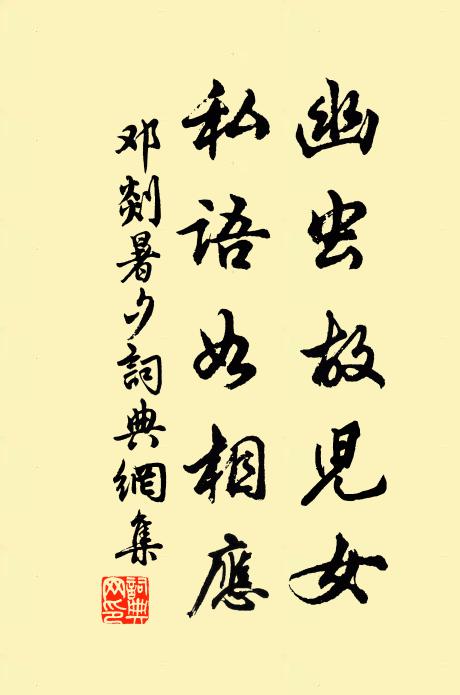 幽虫故兒女
私語如相應
邓剡暑夕詞典網集
詞典
网印